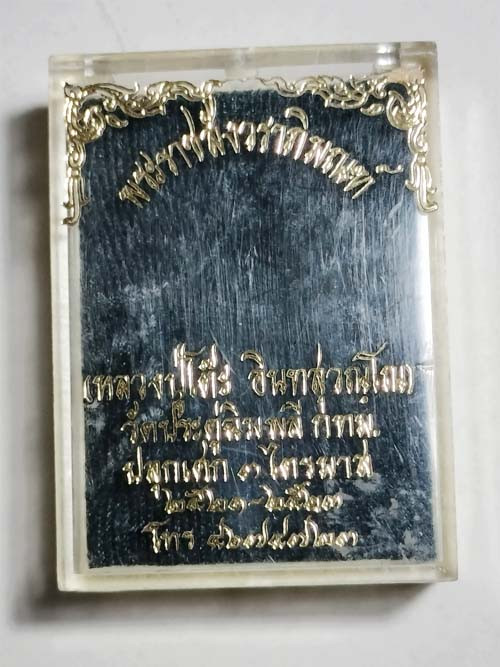 พระราชสังวราภิมณฑ์
(หลวงปู่โต๊ะ อินทสุวณฺโณ)
วัดประดู่ฉิมพลี กทม.
ปลุกเสก ๓ ไตรมาส
๒๕๒๑-๒๕๒๓
โทร